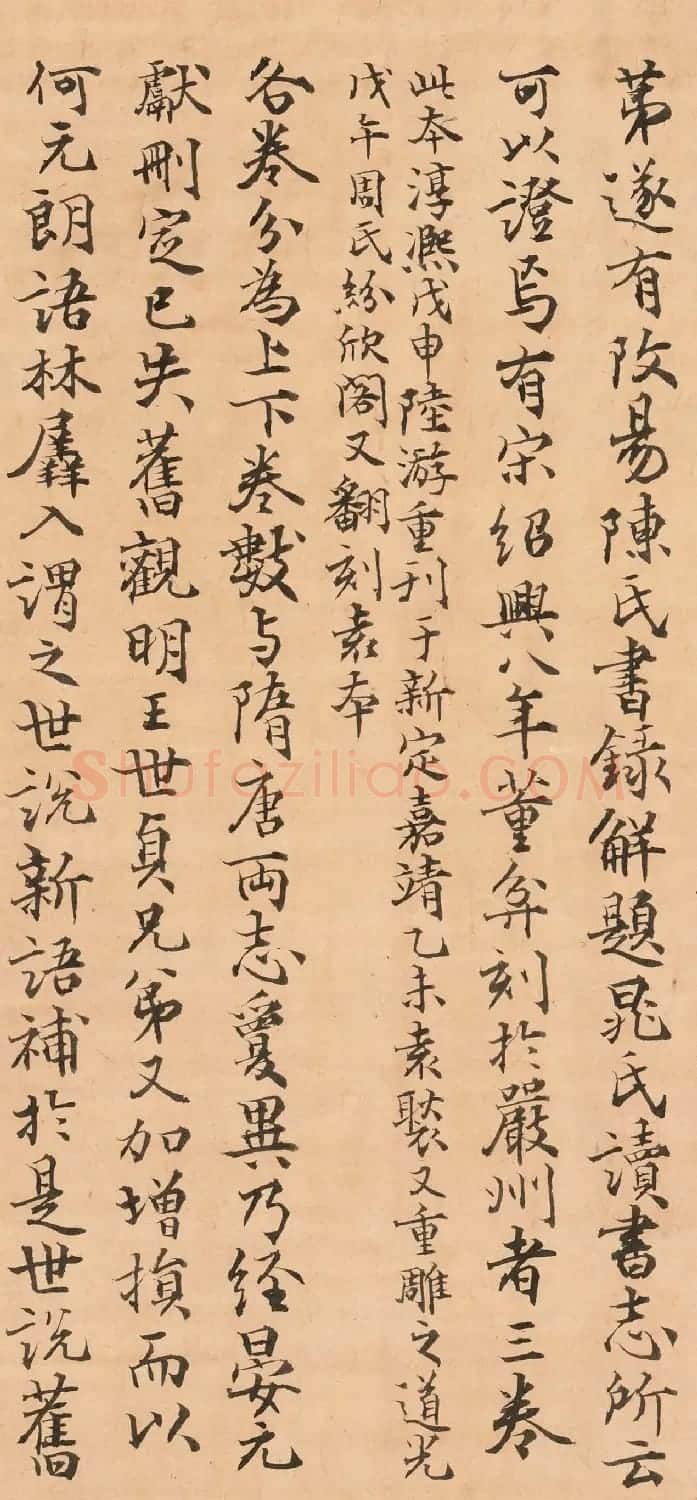 苐遂有攺易陳氏書録解題晁氏讀書志所云
可以證焉有宋紹興八年董弅刻於嚴州者三卷
此本淳熈戊申陸游重刊于新定嘉靖乙未袁褧又重雕之道光
戊午周氏紛欣閣又翻刻袁本
各卷分為上下卷數与隋唐両志敻異乃經晏元
獻刪定已失舊觀明王世貞兄弟又加增損而以
何元朗語林羼入謂之世說新語補於是世說舊
Shufaziliao.COM